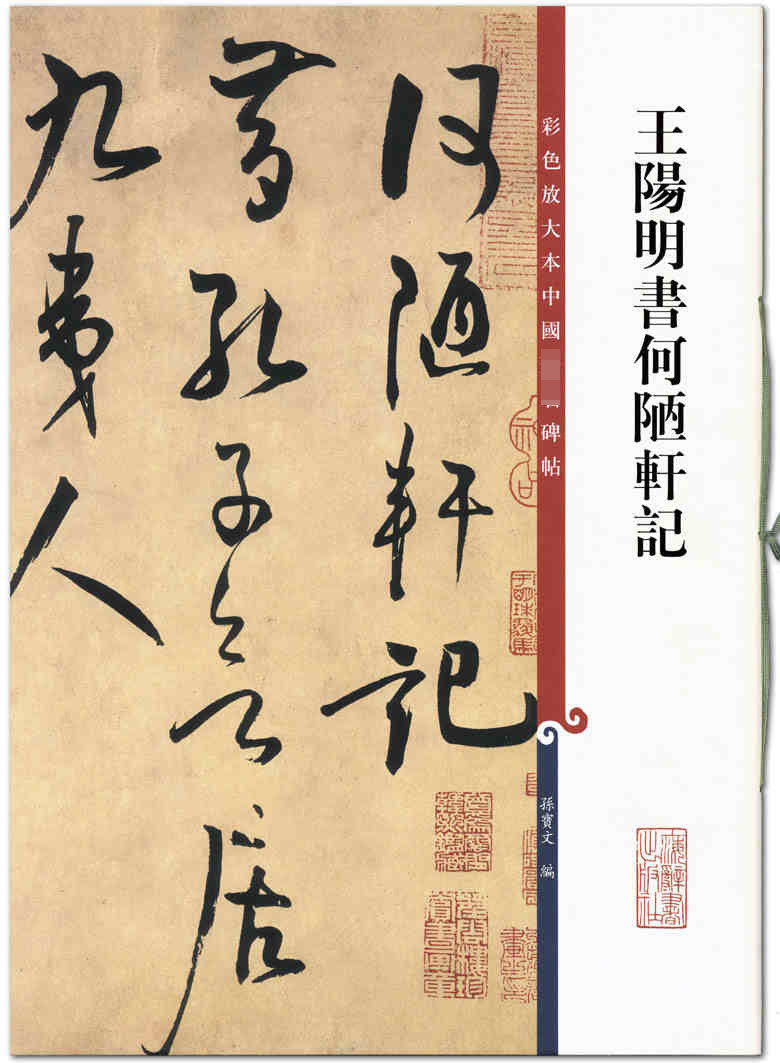 王陽明書何陋軒記
彩色放大本中國碑帖
孫寶文 編
海辭書
出版社
何陋軒記
昔孔子欲居
九夷人